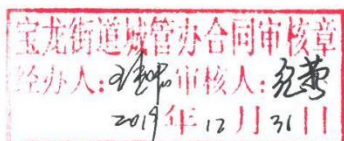 宝龙街道城管办合同审核章
经办人: 审核人:
2019年12月31日